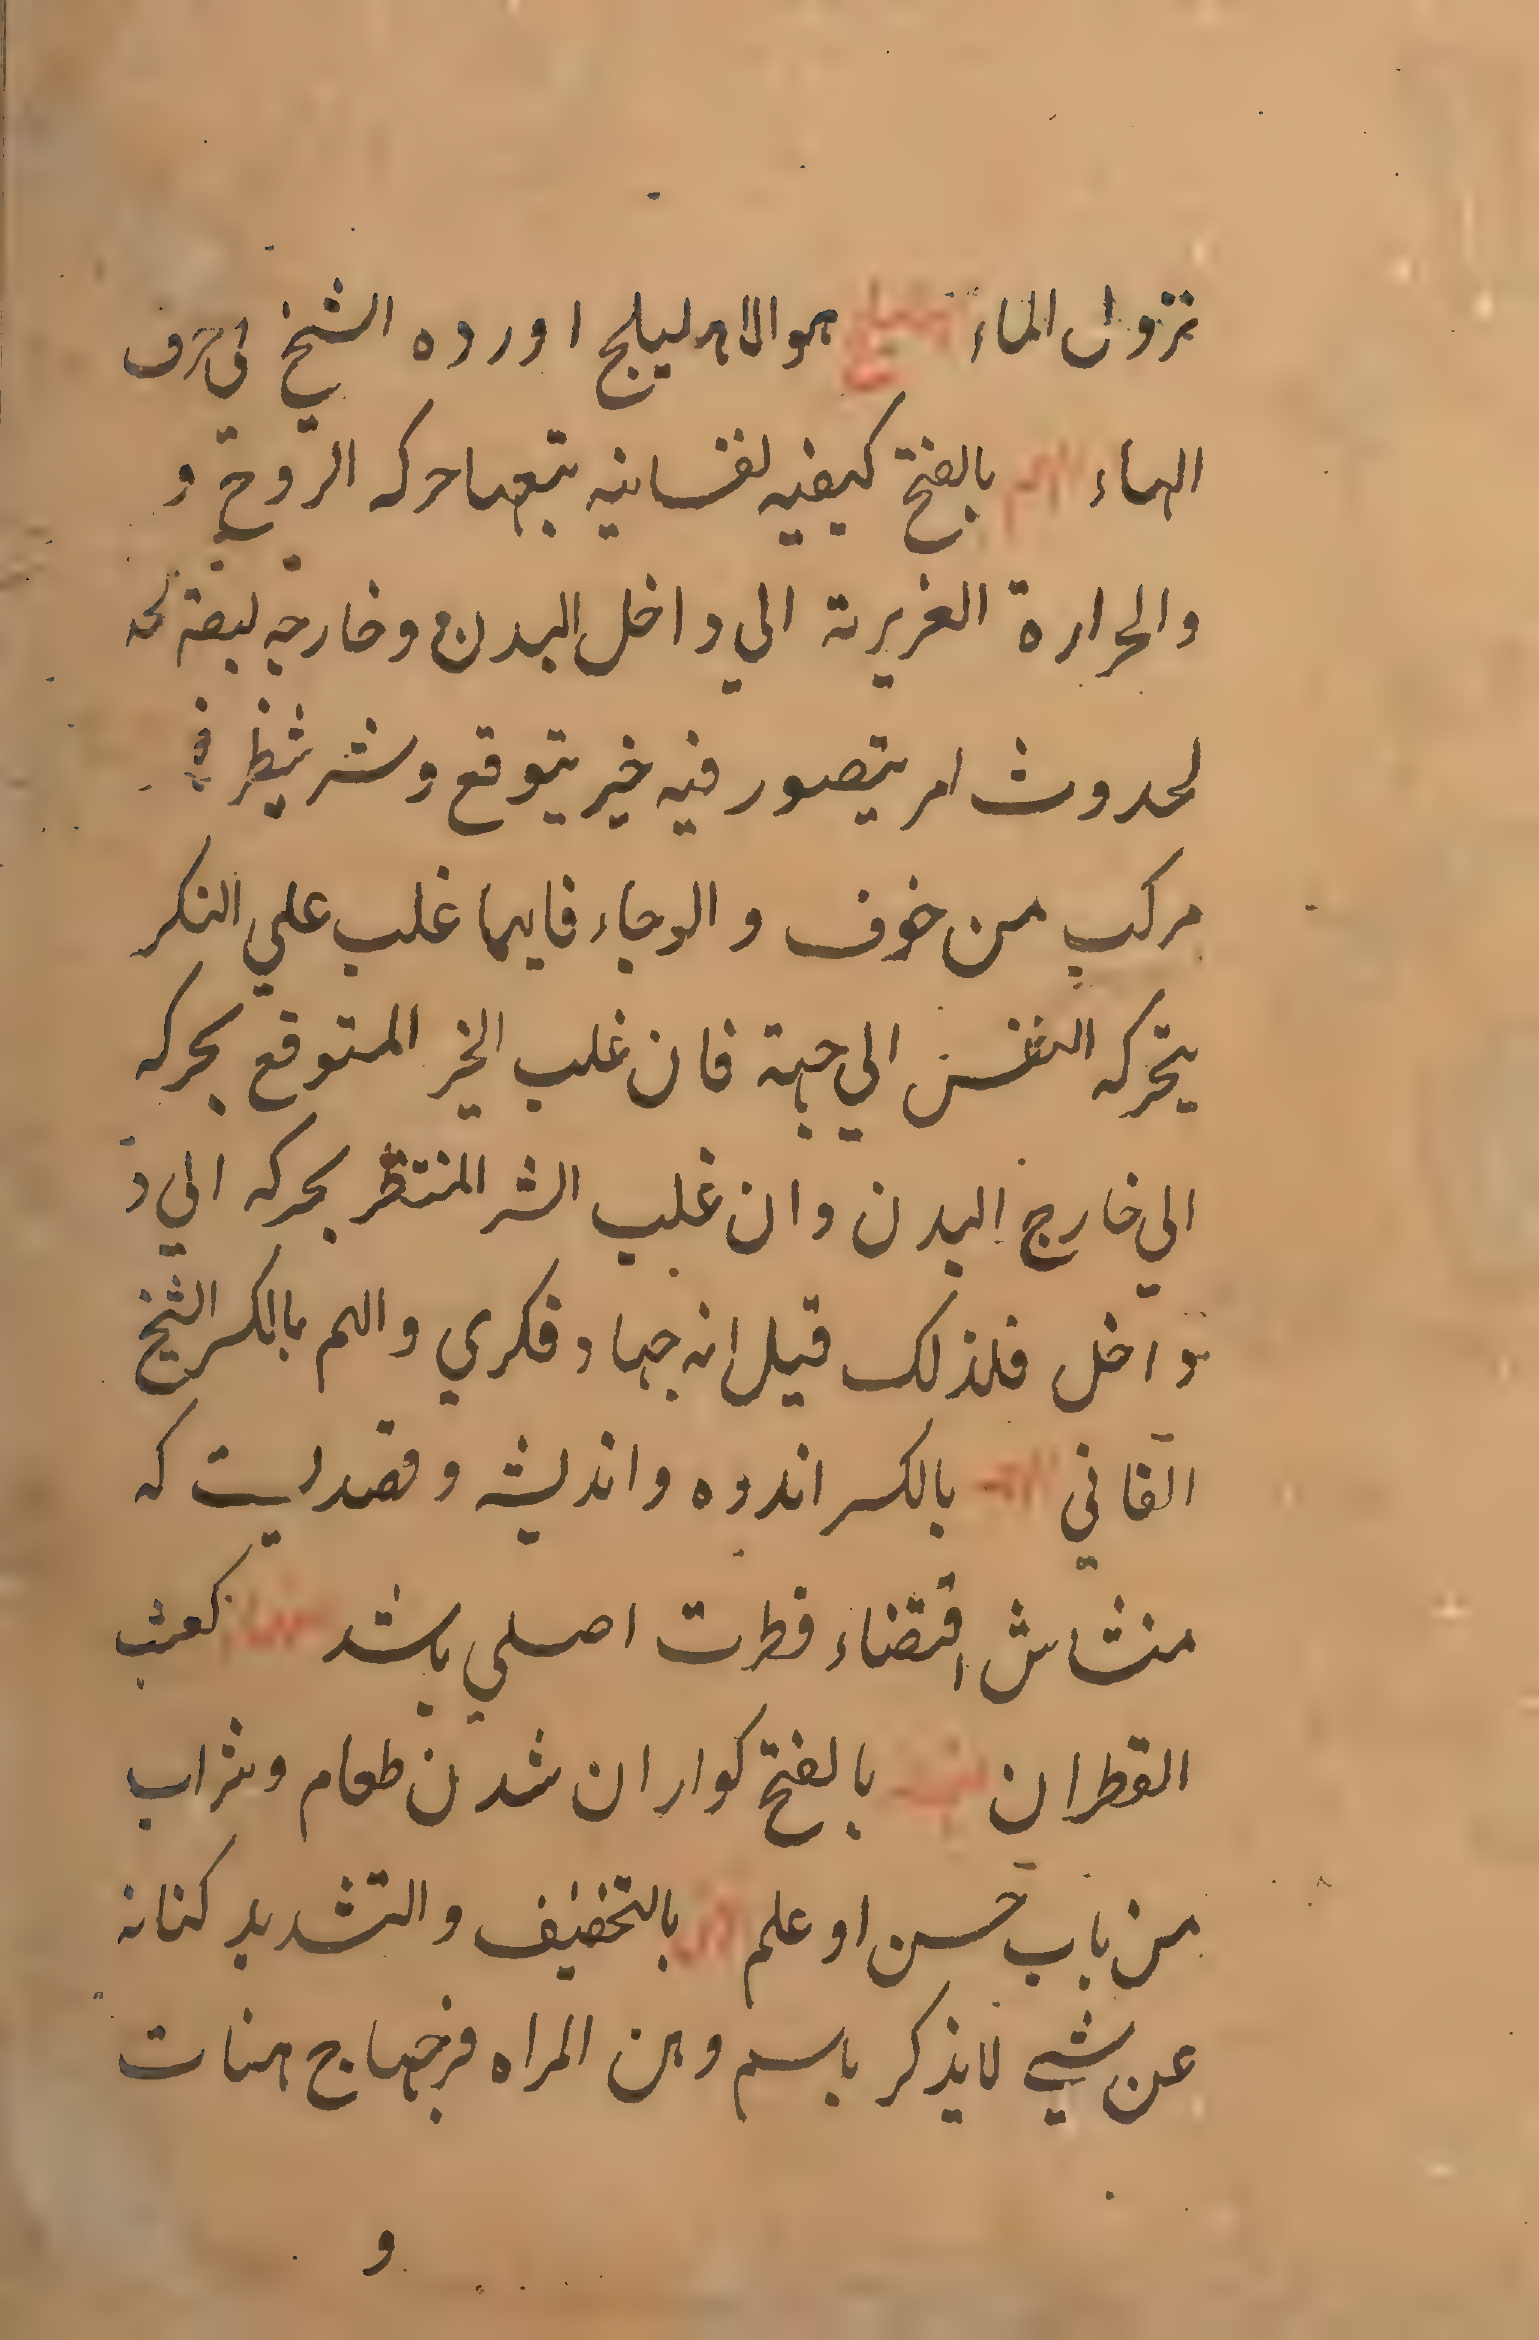 نزول الماء هوالاهليلج اورده الشيخ في حرف
الهاء الهم بالفتح كيفيه نفسانيه يتبعها حركه الروح و
والحرارة الغريزية الي داخل البدن و خارجه لبغتة لحد
لحدوث امر يتصور فيه خير يتوقع وشر ينظر في
مركب من خوف و الرجاء فايهما غلب علي الفكر
يتحركه النفس الي جهة فان غلب الخير المتوقع بحركه
الي خارج البدن وان غلب الشر المنتظر بحركه الي د
داخل فلذلك قيل انه جهاد فكري والهم بالكسر الشيخ
الفاني الهمه بالكسر اندوه وانديشه وقصديست كه
منشاش اقتضاء فطرت اصلي باشد كعنب
القطران بالفتح كواران شدن طعام وشراب
من باب حسن او علم الهن بالتخفيف والتشديد كنانه
عن شيي لايذكر باسم وهن المراه فرجهاج هنات
و